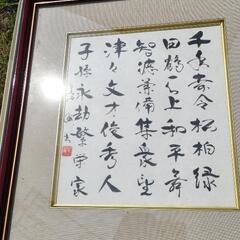 千委寿令松柏緑
田鶴以上和平舞
智徳兼備集衆望
津々文才俊秀人
子孫永劫繁栄家